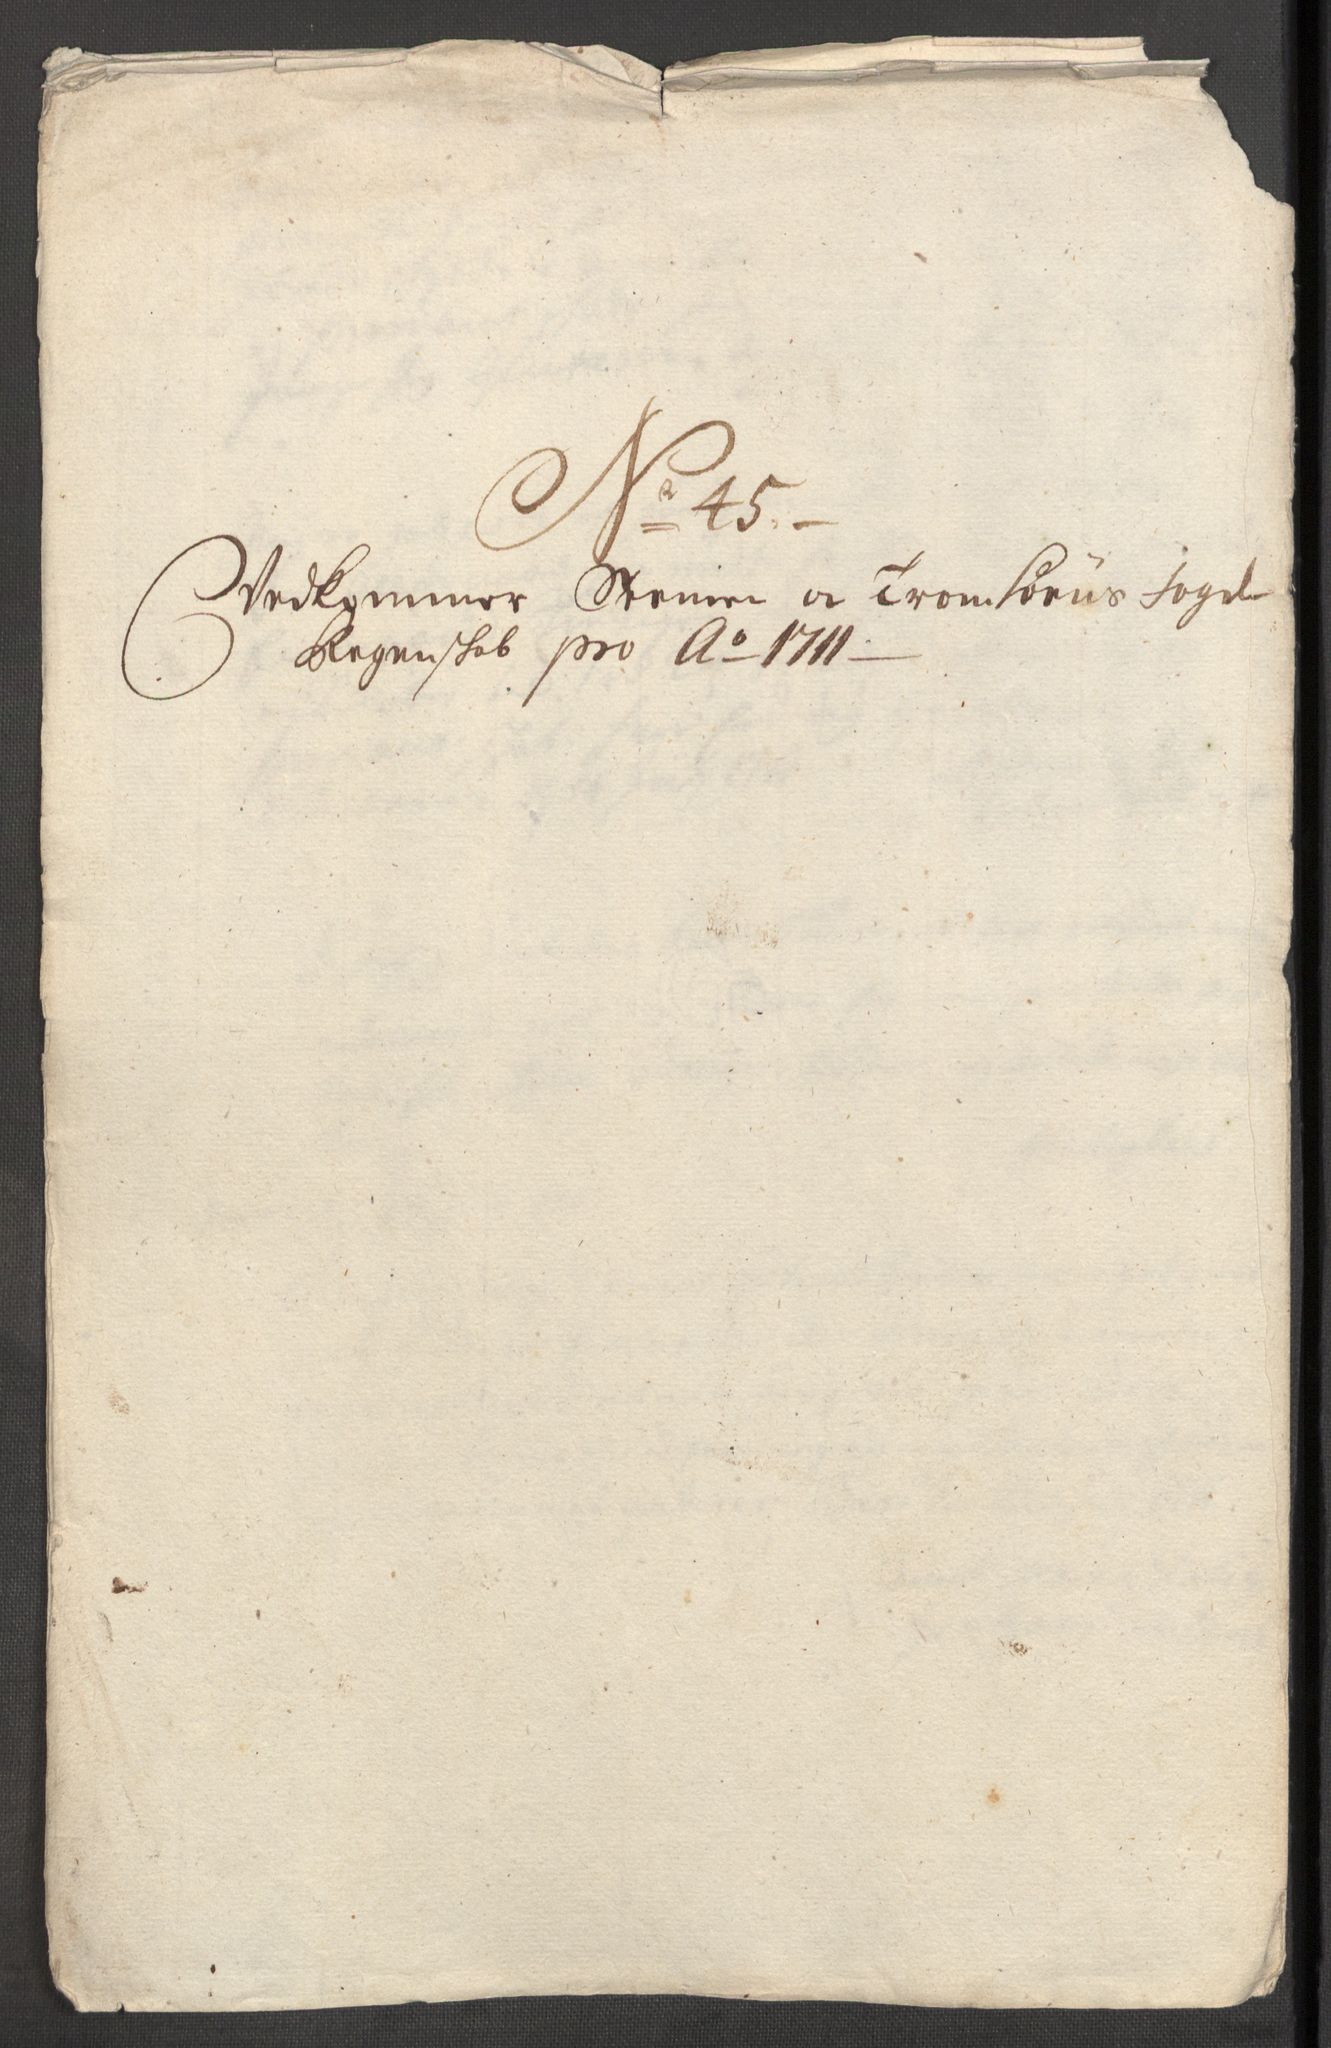 No 45.
Vedkommer Senien oc Tromsöens fogd-
Regenskab pro Ao 1711